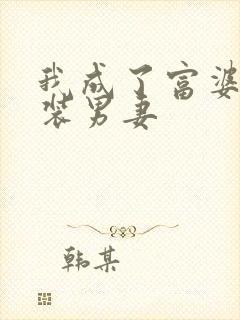 我成了富婆
装男妻
韩某